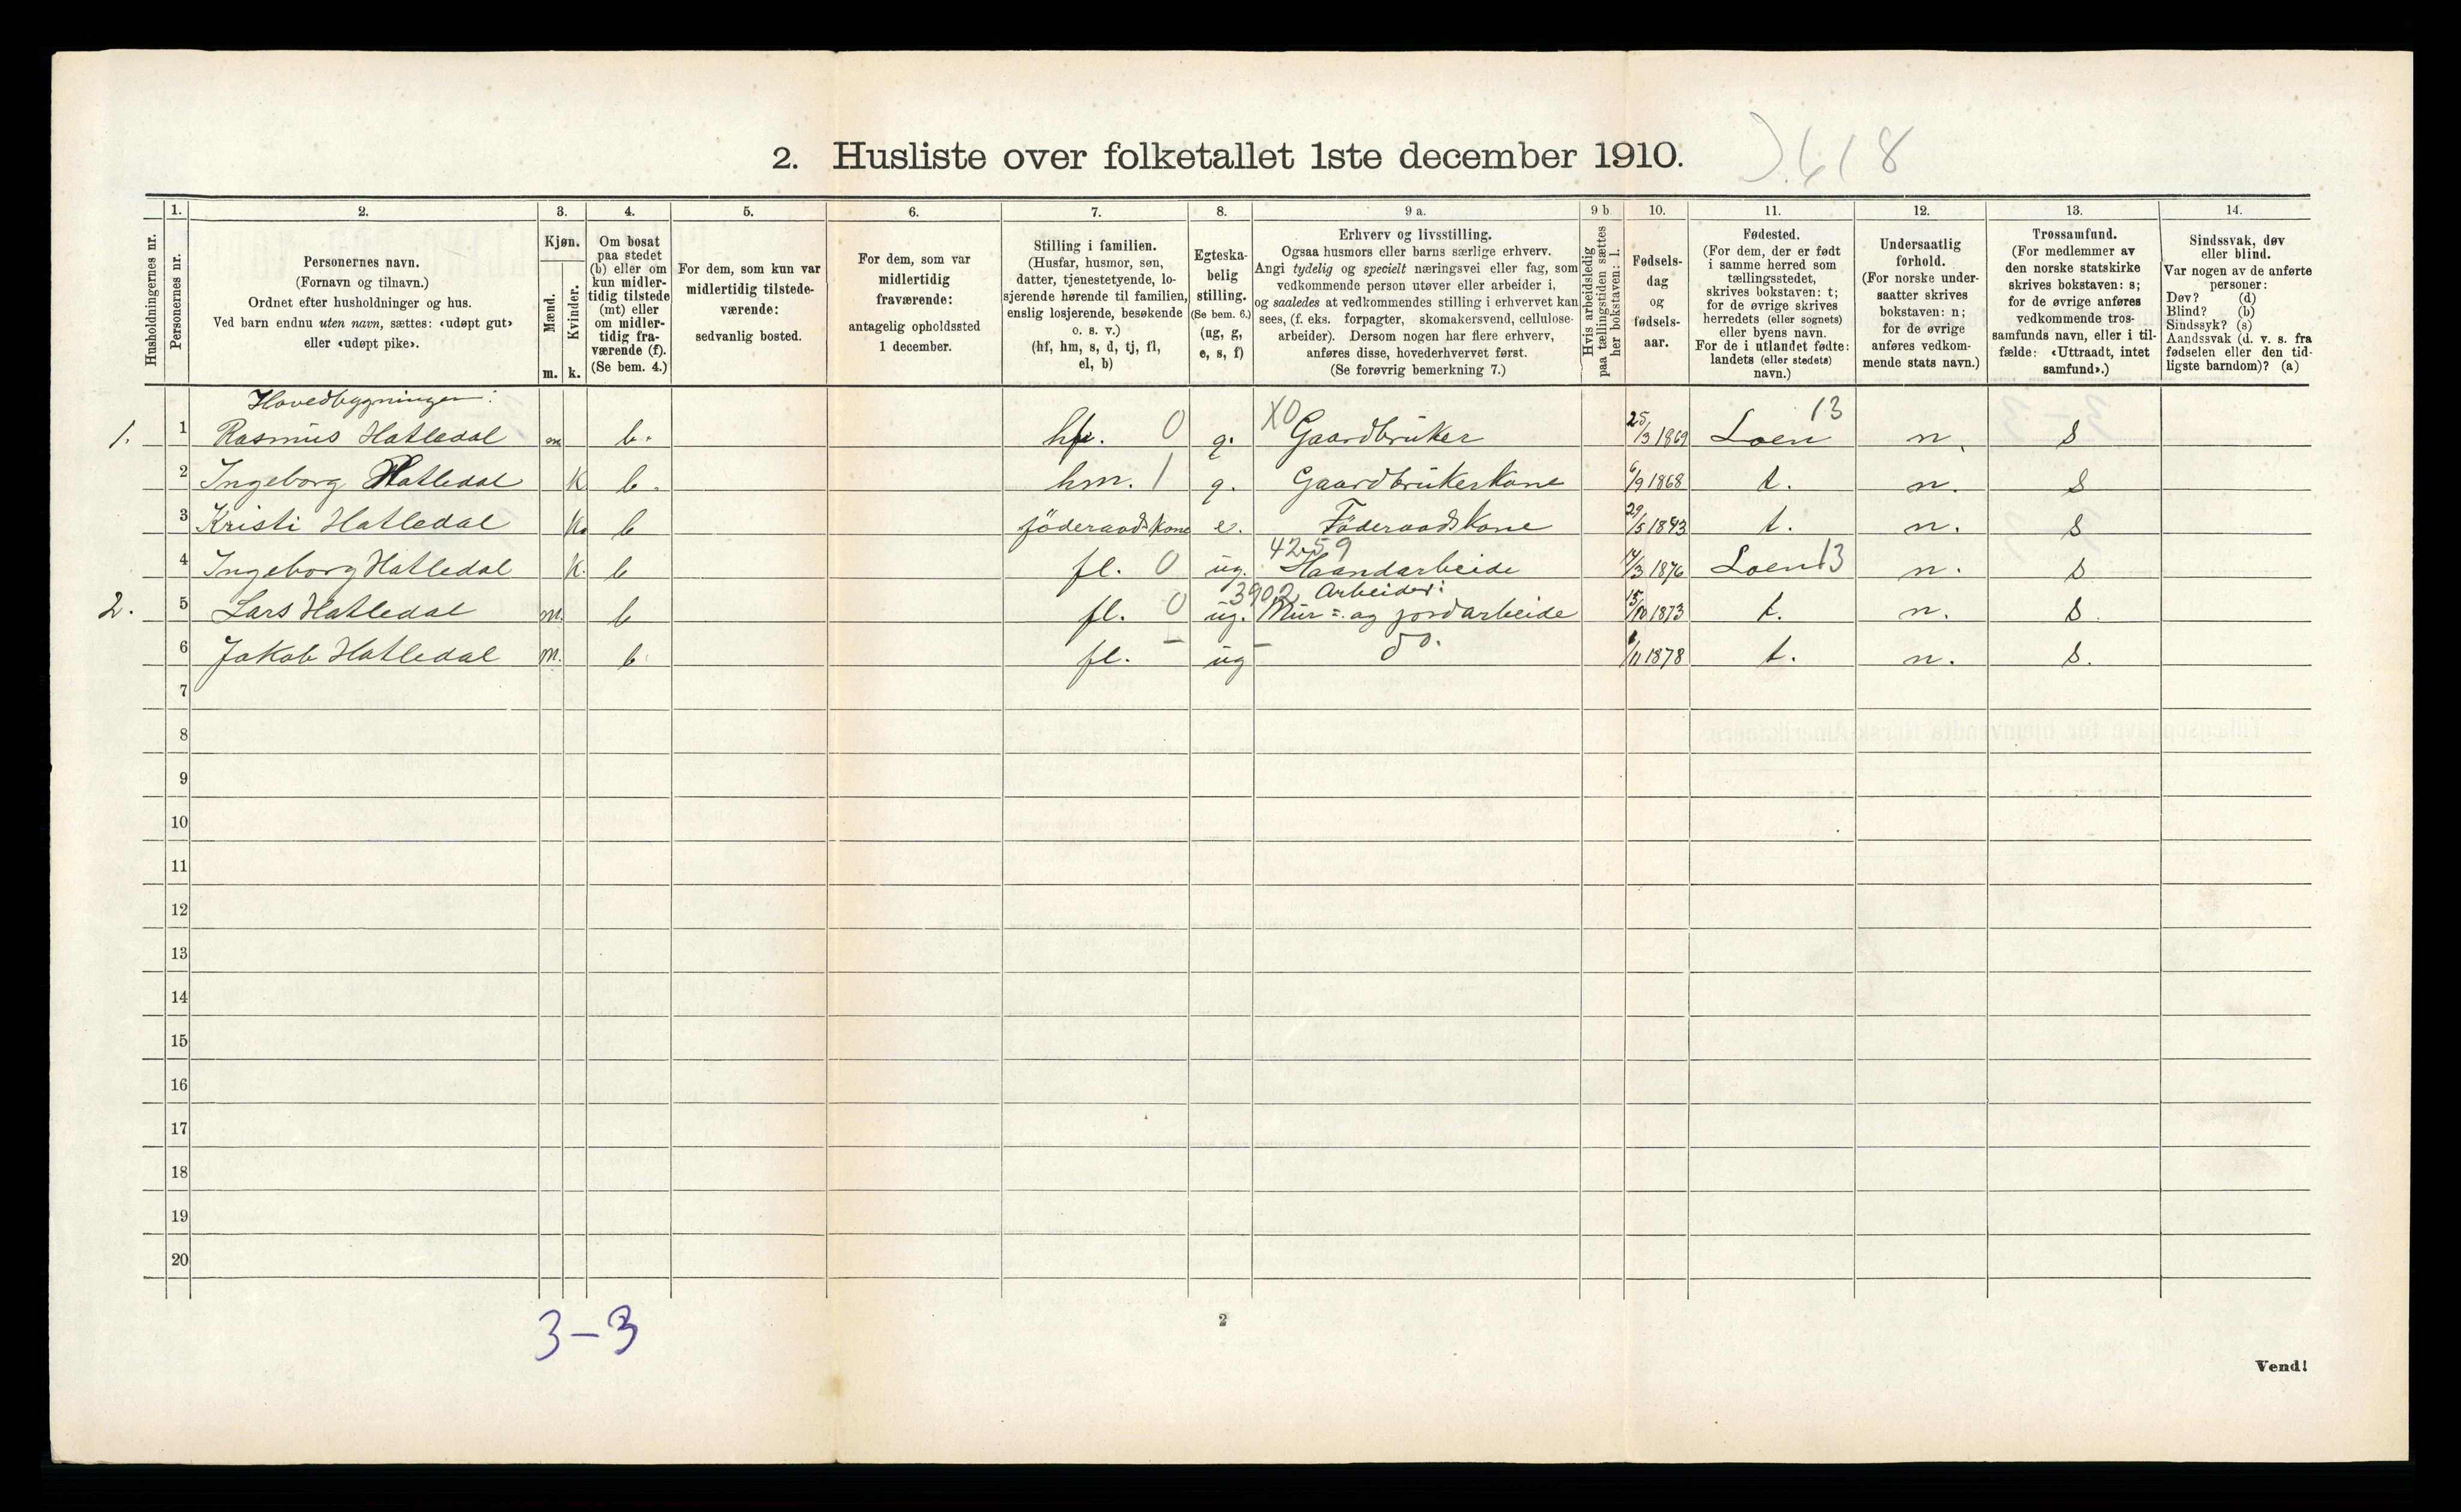 2. Husliste over folketallet 1ste december 1910.
Husholdningernes nr.
1.
Personernes nr.
2.
Personernes navn.
(Fornavn og tilnavn.)
Ordnet efter husholdninger og hus.
Ved barn endnu uten navn, sættes: «udøpt gut»
eller «udøpt pike».
3.
Kjøn.
Mænd.
Kvinder.
m. k.
4.
Om bosat
paa stedet
(b) eller om
kun midler-
tidig tilstede
(mt) eller
om midler-
tidig fra-
værende (f).
(Se bem. 4.)
5.
For dem, som kun var
midlertidig tilstede-
værende:
sedvanlig bosted.
6.
For dem, som var
midlertidig
fraværende:
antagelig opholdssted
1 december.
7.
Stilling i familien.
(Husfar, husmor, søn,
datter, tjenestetyende, lo-
sjerende hørende til familien,
enslig losjerende, besøkende
o. s. v.)
(hf, hm, s, d, tj, fl,
el, b)
8.
Egteska-
belig
stilling.
(Se bem. 6.)
(ug, g,
e, s, f)
9 a.
Erhverv og livsstilling.
Ogsaa husmors eller barns særlige erhverv.
Angi tydelig og specielt næringsvei eller fag, som
vedkommende person utøver eller arbeider i,
og saaledes at vedkommendes stilling i erhvervet kan
sees, (f. eks. forpagter, skomakersvend, cellulose-
arbeider). Dersom nogen har flere erhverv,
anføres disse, hovederhvervet først.
(Se forøvrig bemerkning 7.)
9 b
Hvis arbeidsledig
paa tællingstiden sættes
her bokstaven: l.
10.
Fødsels-
dag
og
fødsels-
aar.
11.
Fødested.
(For dem, der er født
i samme herred som
tællingsstedet,
skrives bokstaven: t;
for de øvrige skrives
herredets (eller sognets)
eller byens navn.
For de i utlandet fødte:
landets (eller stedets)
navn.)
12.
Undersaatlig
forhold.
(For norske under-
saatter skrives
bokstaven: n;
for de øvrige
anføres vedkom-
mende stats navn.)
13.
Trossamfund.
(For medlemmer av
den norske statskirke
skrives bokstaven: s;
for de øvrige anføres
vedkommende tros-
samfunds navn, eller i til-
fælde: «Uttraadt, intet
samfund».)
14.
Sindssvak, døv
eller blind.
Var nogen av de anførte
personer:
Døv? (d)
Blind? (b)
Sindssyk? (s)
Aandssvak (d. v. s. fra
fødselen eller den tid-
ligste barndom)? (a)
Hovedbygningen:
1. 1 Rasmus Hatledal m b. hf. 0 g. X0 Gaardbruker 25/3 1869 Loen 13 n. s
2 Ingeborg Hatledal k b. hm. 1 g. Gaardbrukerkone 6/9 1868 t. n. s
3 Kristi Hatledal k. b föderaadskone e. Föderaadskone 29/5 1843 t. n. s
4 Ingeborg Hatledal k. b fl. 0 ug. 4259 Haandarbeide 14/3 1876 Loen 13 n. s
2. 5 Lars Hatledal m. b fl. 0 ug. 3902 Arbeider: Mur= og jordarbeide 15/10 1873 t. n. s.
6 Jakob Hatledal m. b fl. – ug – do. 1/11 1878 t. n. s.
7
8
9
10
11
12
13
14
15
16
17
18
19
20
3–3
2
Vend!